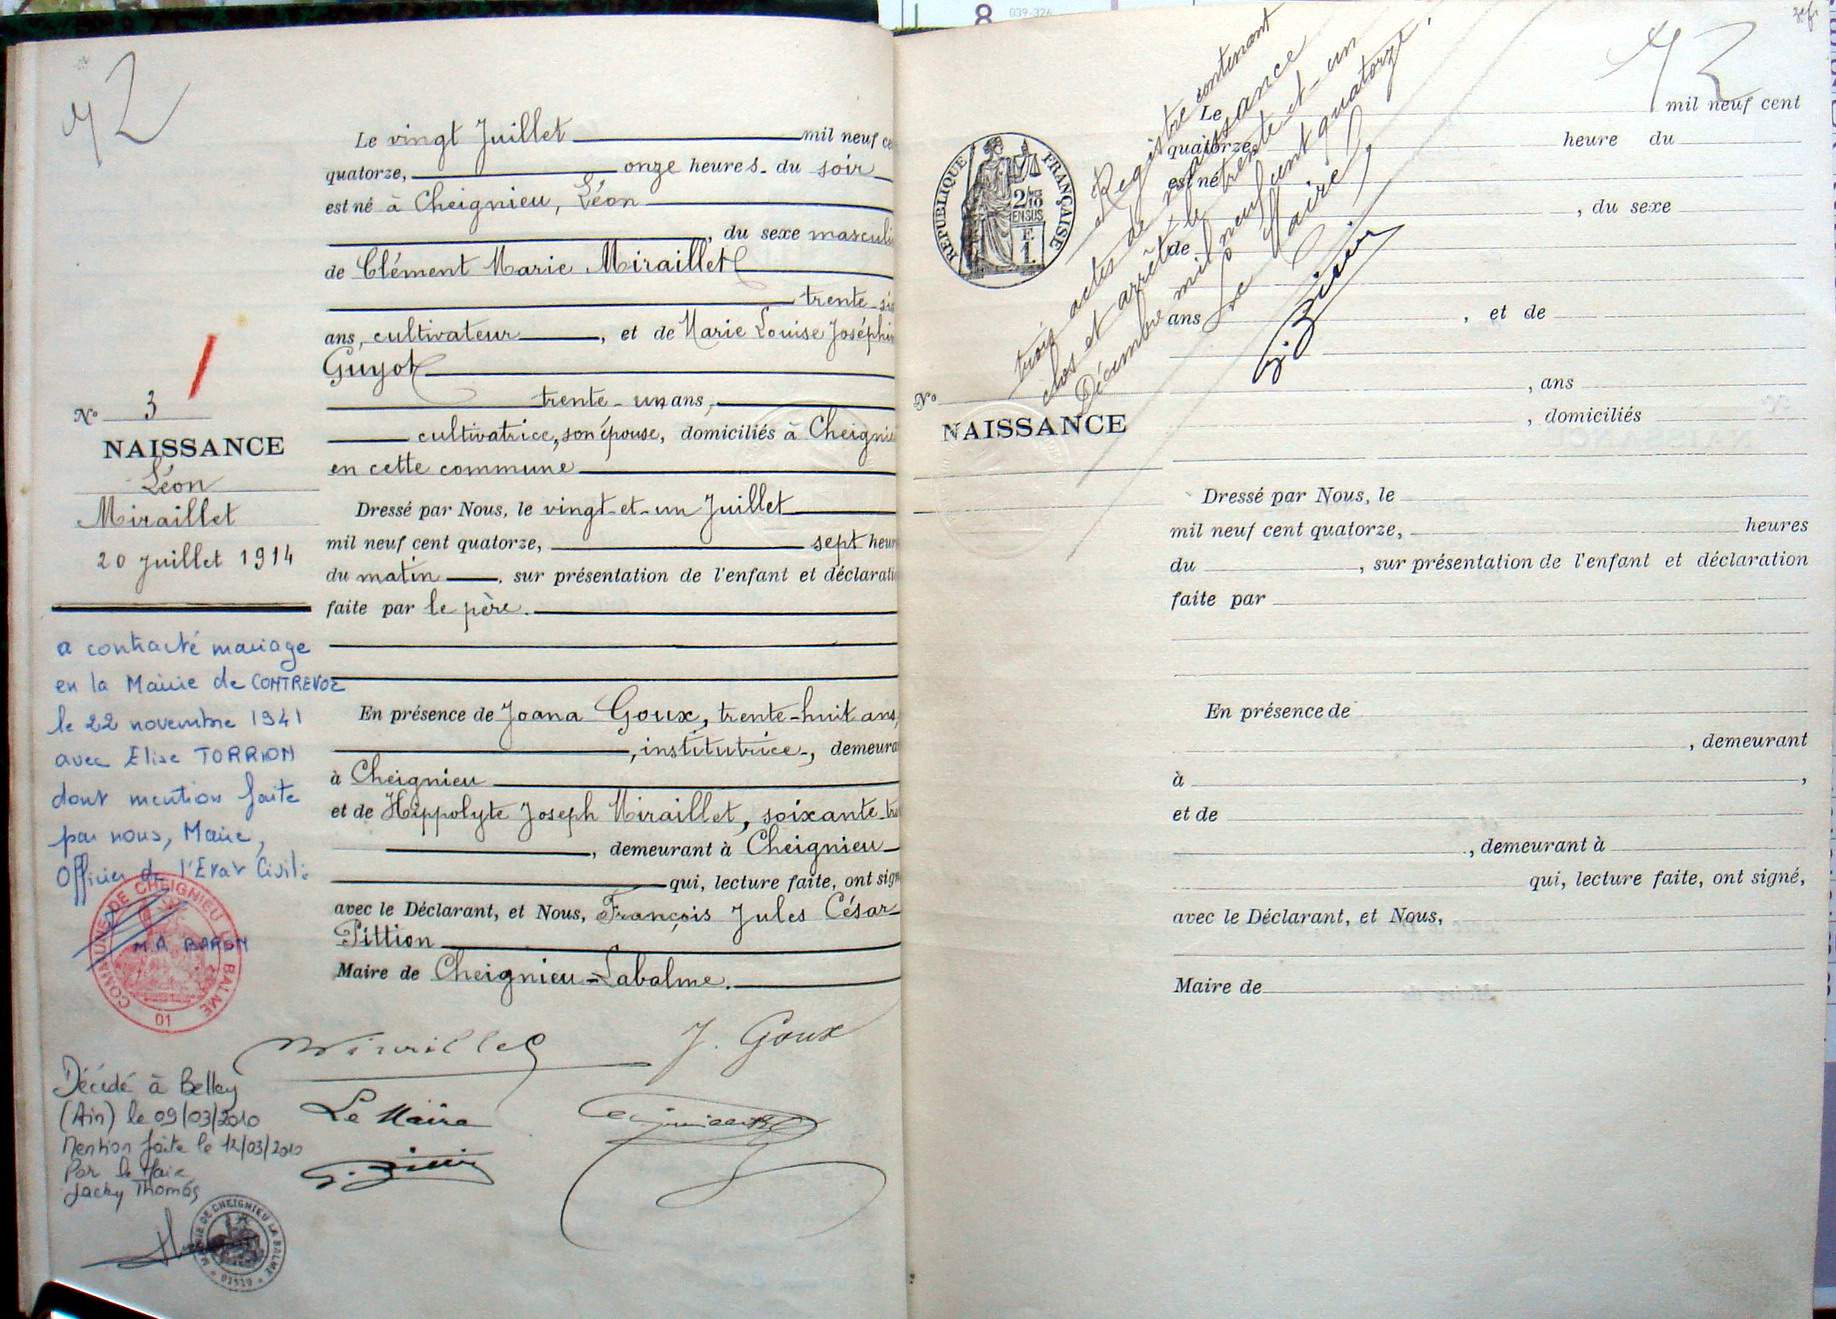 42
Le vingt Juillet mil neuf ce
quatorze, onze heures du soir
est né à Cheignieu, Léon
, du sexe masculi
de Clément Marie Miraillet
trente-six
ans, cultivateur, et de Marie Louise Joséphin
Guyot
trente-un ans,
cultivatrice, son épouse, domiciliés à Cheignie
en cette commune
Dressé par Nous, le vingt-et-un Juillet
mil neuf cent quatorze, sept heur
du matin, sur présentation de l'enfant et déclarati
faite par le père.
En présence de Joana Goux, trente-huit ans,
, institutrice, demeura
à Cheignieu
et de Hippolyte Joseph Miraillet, soixante-tr
, demeurant à Cheignieu
qui, lecture faite, ont sign
avec le Déclarant, et Nous, François Jules César
Pittion
Maire de Cheignieu-Labalme.
Miraillet
J. Goux
Le Maire
No 3
NAISSANCE
Léon
Miraillet
20 Juillet 1914
a contracté mariage
en la Mairie de CONTREVOZ
le 22 novembre 1941
avec Elise TORRION
dont mention faite
par nous, Maire,
Officier de l'Etat Civil.
COMMUNE DE CHEIGNIEU LA BALME
M.A BARON
01
Décédé à Belley
(Ain) le 09/03/2010
Mention faite le 12/03/2010
Par le Maire
Jacky Thomas
MAIRIE DE CHEIGNIEU LA BALME
01510
8
039-326
42
RÉPUBLIQUE FRANÇAISE
2/10
EN SUS
E.
1.
Registre contenant
trois actes de naissance
clos et arrêté le trente-et-un
Décembre mil neuf cent quatorze.
Le Maire,
Le mil neuf cent
quatorze, heure du
est né
, du sexe
de
ans , et de
, ans
No
NAISSANCE
, domiciliés
Dressé par Nous, le
mil neuf cent quatorze, heures
du , sur présentation de l'enfant et déclaration
faite par
En présence de
, demeurant
à ,
et de
, demeurant à
qui, lecture faite, ont signé,
avec le Déclarant, et Nous,
Maire de